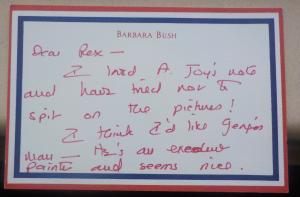 BARBARA BUSH
Dear Rex —
I loved A. Joy's note
and have tried not to
spit on the pictures!
I think I'd like George's
man — He's an excellent
painter and seems nice.